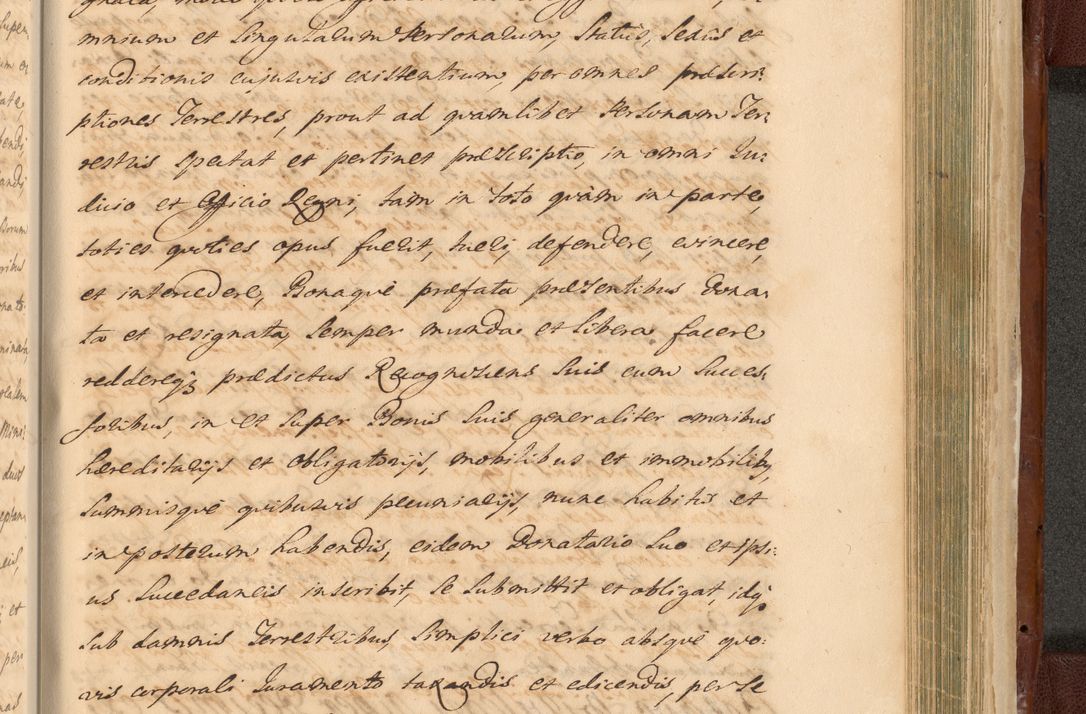 mnium et Singularum Personarum, Status, Sexus et
conditionis cujusvis existentium, per omnes præscri:
ptiones Terrestres, prout ad quamlibet Personam Ter:
restris spectat et pertinet præscriptio, in omni Ju:
dicio et Officio Regni, tam in toto quàm in parte,
toties quoties opus fuerit, tueri, defendere, evincere,
et intercedere, Bonaque præfata præsentibus Dona:
ta et resignata, Semper munda et libera facere
reddereq3 prædictus Recognoscens Suis cum Succes:
soribus, in et Super Bonis Suis generaliter omnibus
hæreditarijs et obligatorijs, mobilibus et immobilib9,
Summisque quibusvis pecuniarijs, nunc habitis et
in posterum habendis, eidem Donatario Suo et ipsi:
us Succedaneis inscribit, Se Submittit et obligat, idq3
Sub damnis Terrestribus, Simplici verbo absque quo:
vis corporali Juramento taxandis et edicendis, per Se